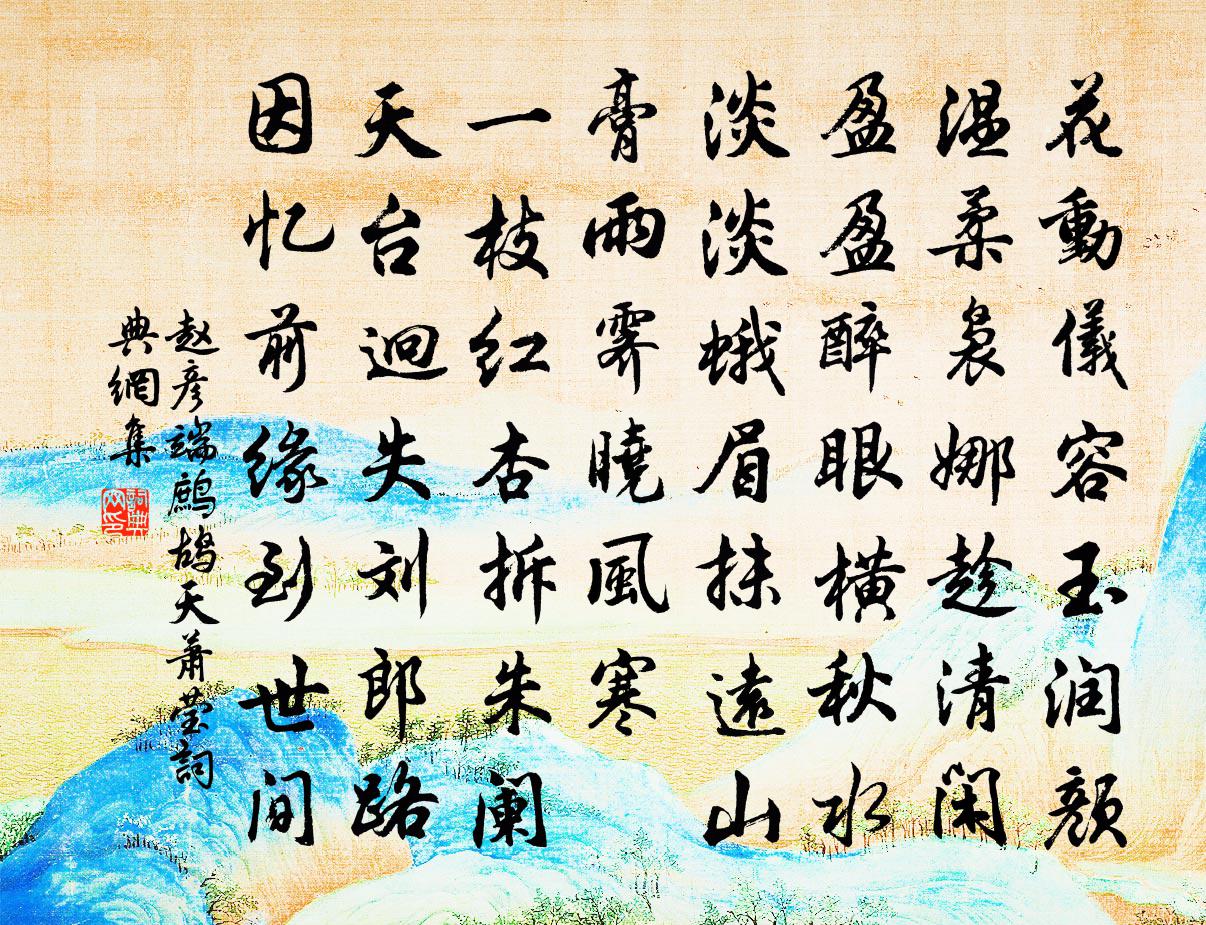 花動儀容玉润颜
温柔袅娜趁清闲
盈盈醉眼横秋水
淡淡蛾眉抹遠山
膏雨霽曉風寒
一枝红杏拆朱阑
天台迴失刘郎路
因忆前缘到世间
赵彦端鷓鴣天萧莹詞
典網集
詞典网印